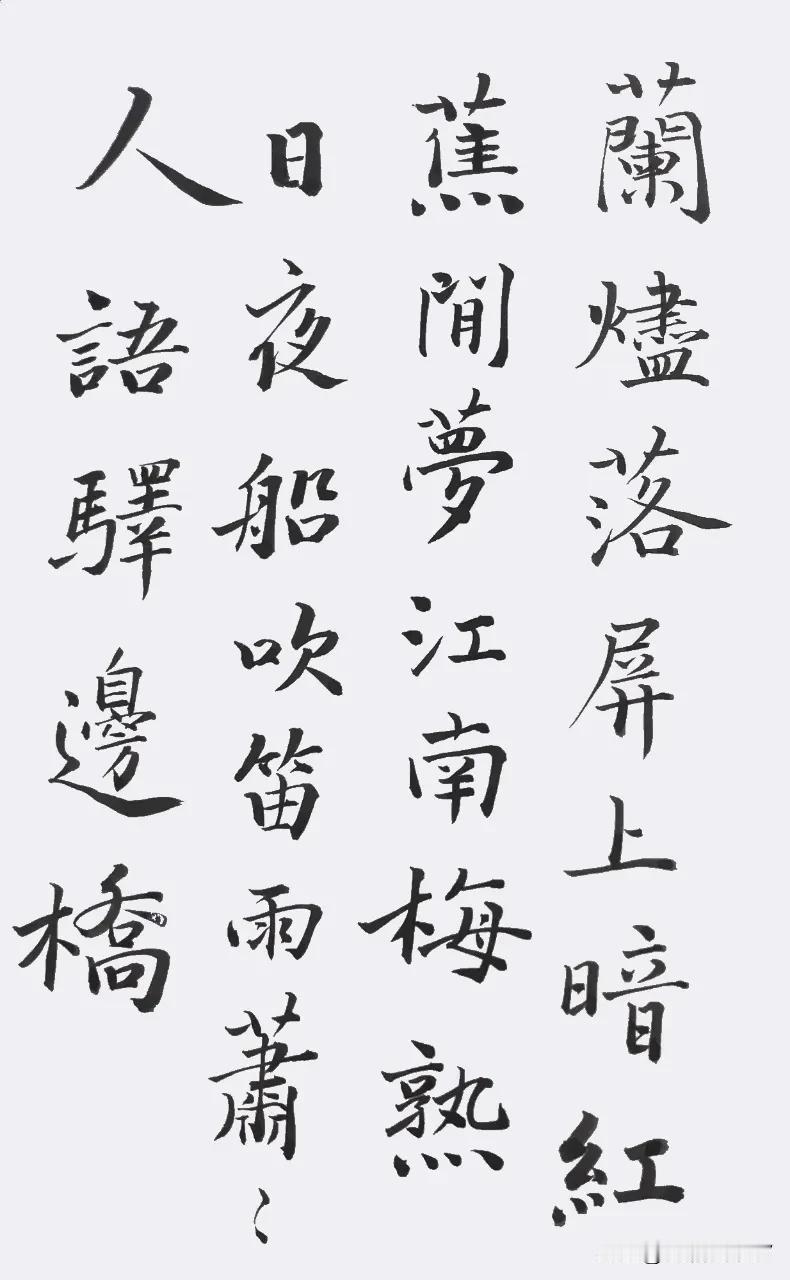 蘭燼落屏上暗紅
蕉閒夢江南梅熟
日夜船吹笛雨蕭〻
人語驛邊橋